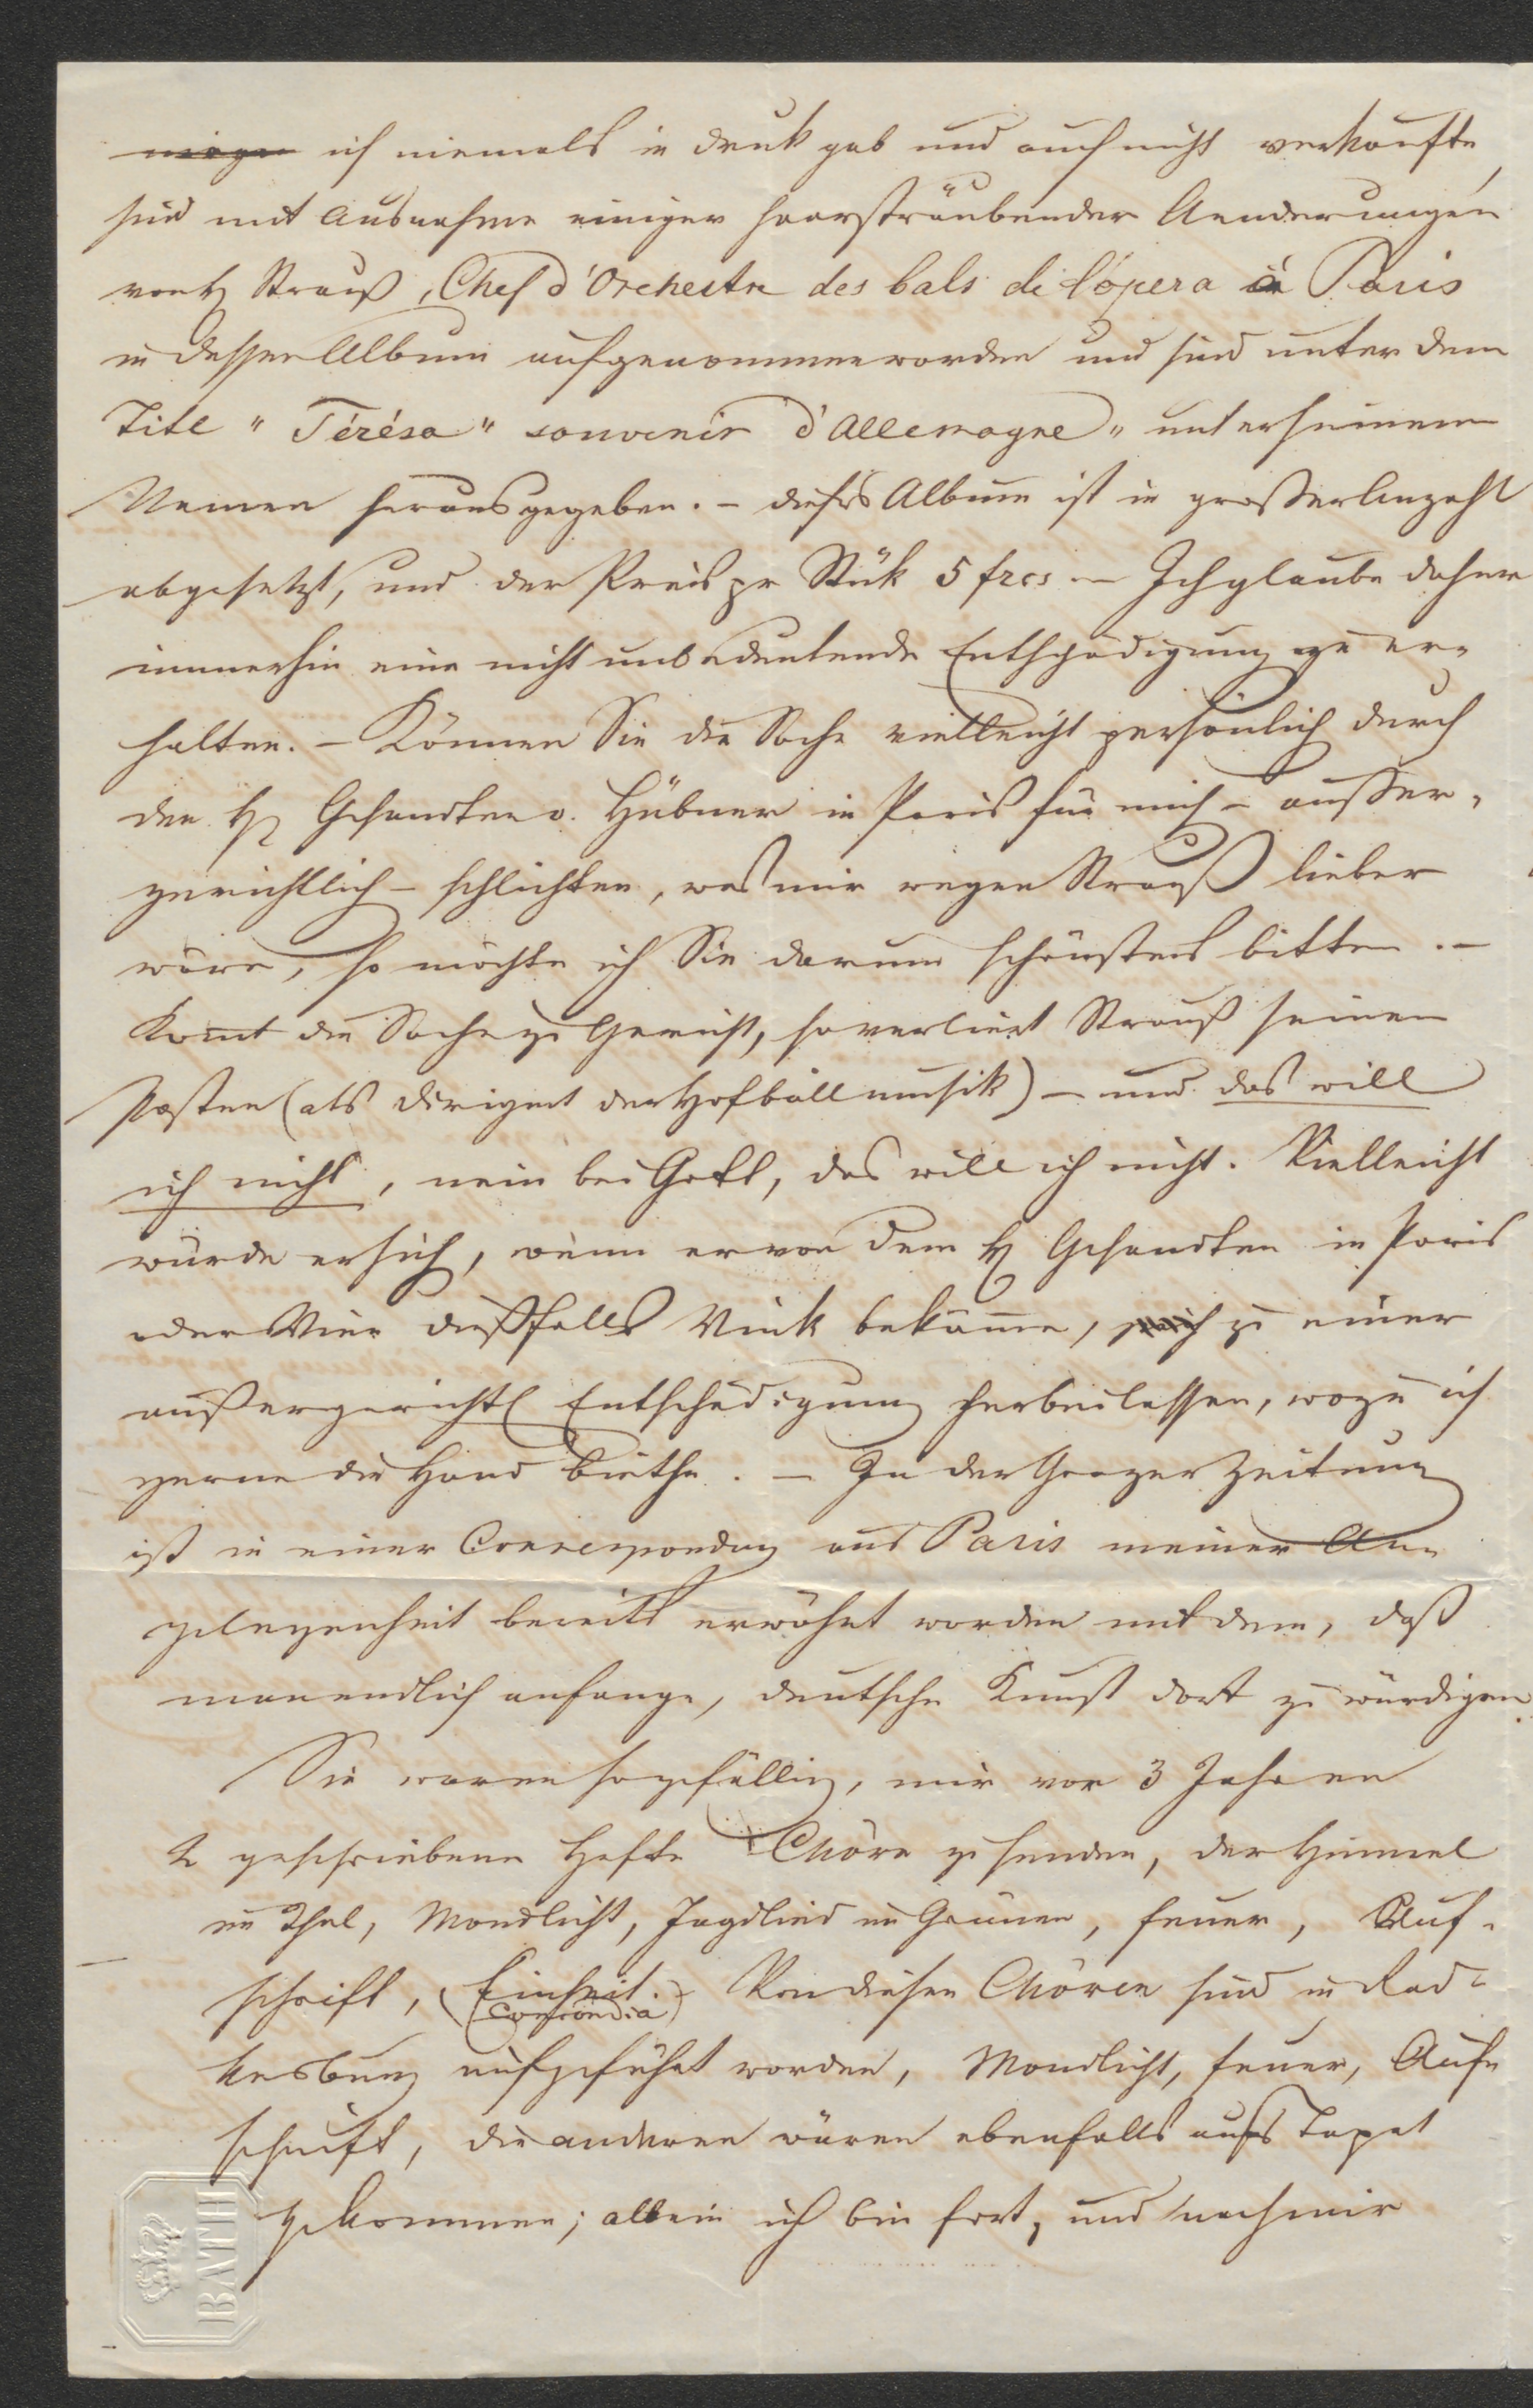 ich niemals in Druk gab und auch nicht verkaufte,
sind mit Ausnahme einiger haarsträubender Aenderungen
von H Strauß, Chef d'Orchestre des bals de l'opera à Paris
in dessen Album aufgenommen worden und sind unter dem
Titl " Térésa " souvenir d'Allemagne " unter seinem
Namen herausgegeben. – dieses Album ist in großer Anzahl
abgesetzt, und der Preis pr Stük 5 frcs. – Ich glaube daher
immerhin eine nicht unbedeutende Entschädigung zu er-
halten. – Können Sie die Sache vielleicht persönlich durch
den H Gesandten v. Hübner in Paris für mich – außer-
gerichtlich – schlichten, was mir wegen Strauß lieber
wäre, so möchte ich Sie darum schönstens bitten. –
Komt die Sache zu Gericht, so verliert Strauß seinen
Posten (als Dirigent der Hofballmusik) – und das will
ich nicht, nein bei Gott, das will ich nicht. Vielleicht
würde er sich, wenn er von dem H Gesandten in Paris
oder Wien dießfalls Wink bekäme, zu einer
außergerichtl Entschädigung herbeilassen, wozu ich
gerne die Hand biethe. – In der Grazer Zeitung
ist in einer Correspondenz aus Paris meiner An-
gelegenheit bereits erwähnt worden mit dem, daß
man endlich anfange, deutsche Kunst dort zu würdigen.
Sie waren so gefällig, mir vor 3 Jahren
2 geschriebene Hefte Chöre zu senden, der Himmel
im Thal, Mondlicht, Jagdlied im Grünen, Feuer, Auf-
schrift, Einheit. – Von diesen Chören sind in Rad-
(Concordia)
kersburg aufgeführt worden, Mondlicht, Feuer, Auf-
schrift, die anderen wären ebenfalls aufs Tapet
gekommen; allein ich bin fort, und nach mir
BATH